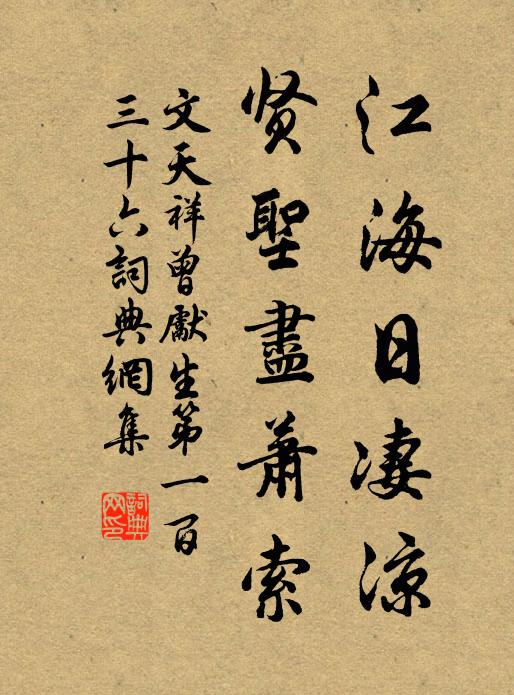 江海日凄凉
贤聖盡蕭索
文天祥曾獻生第一百
三十六詞典網集
詞典網印